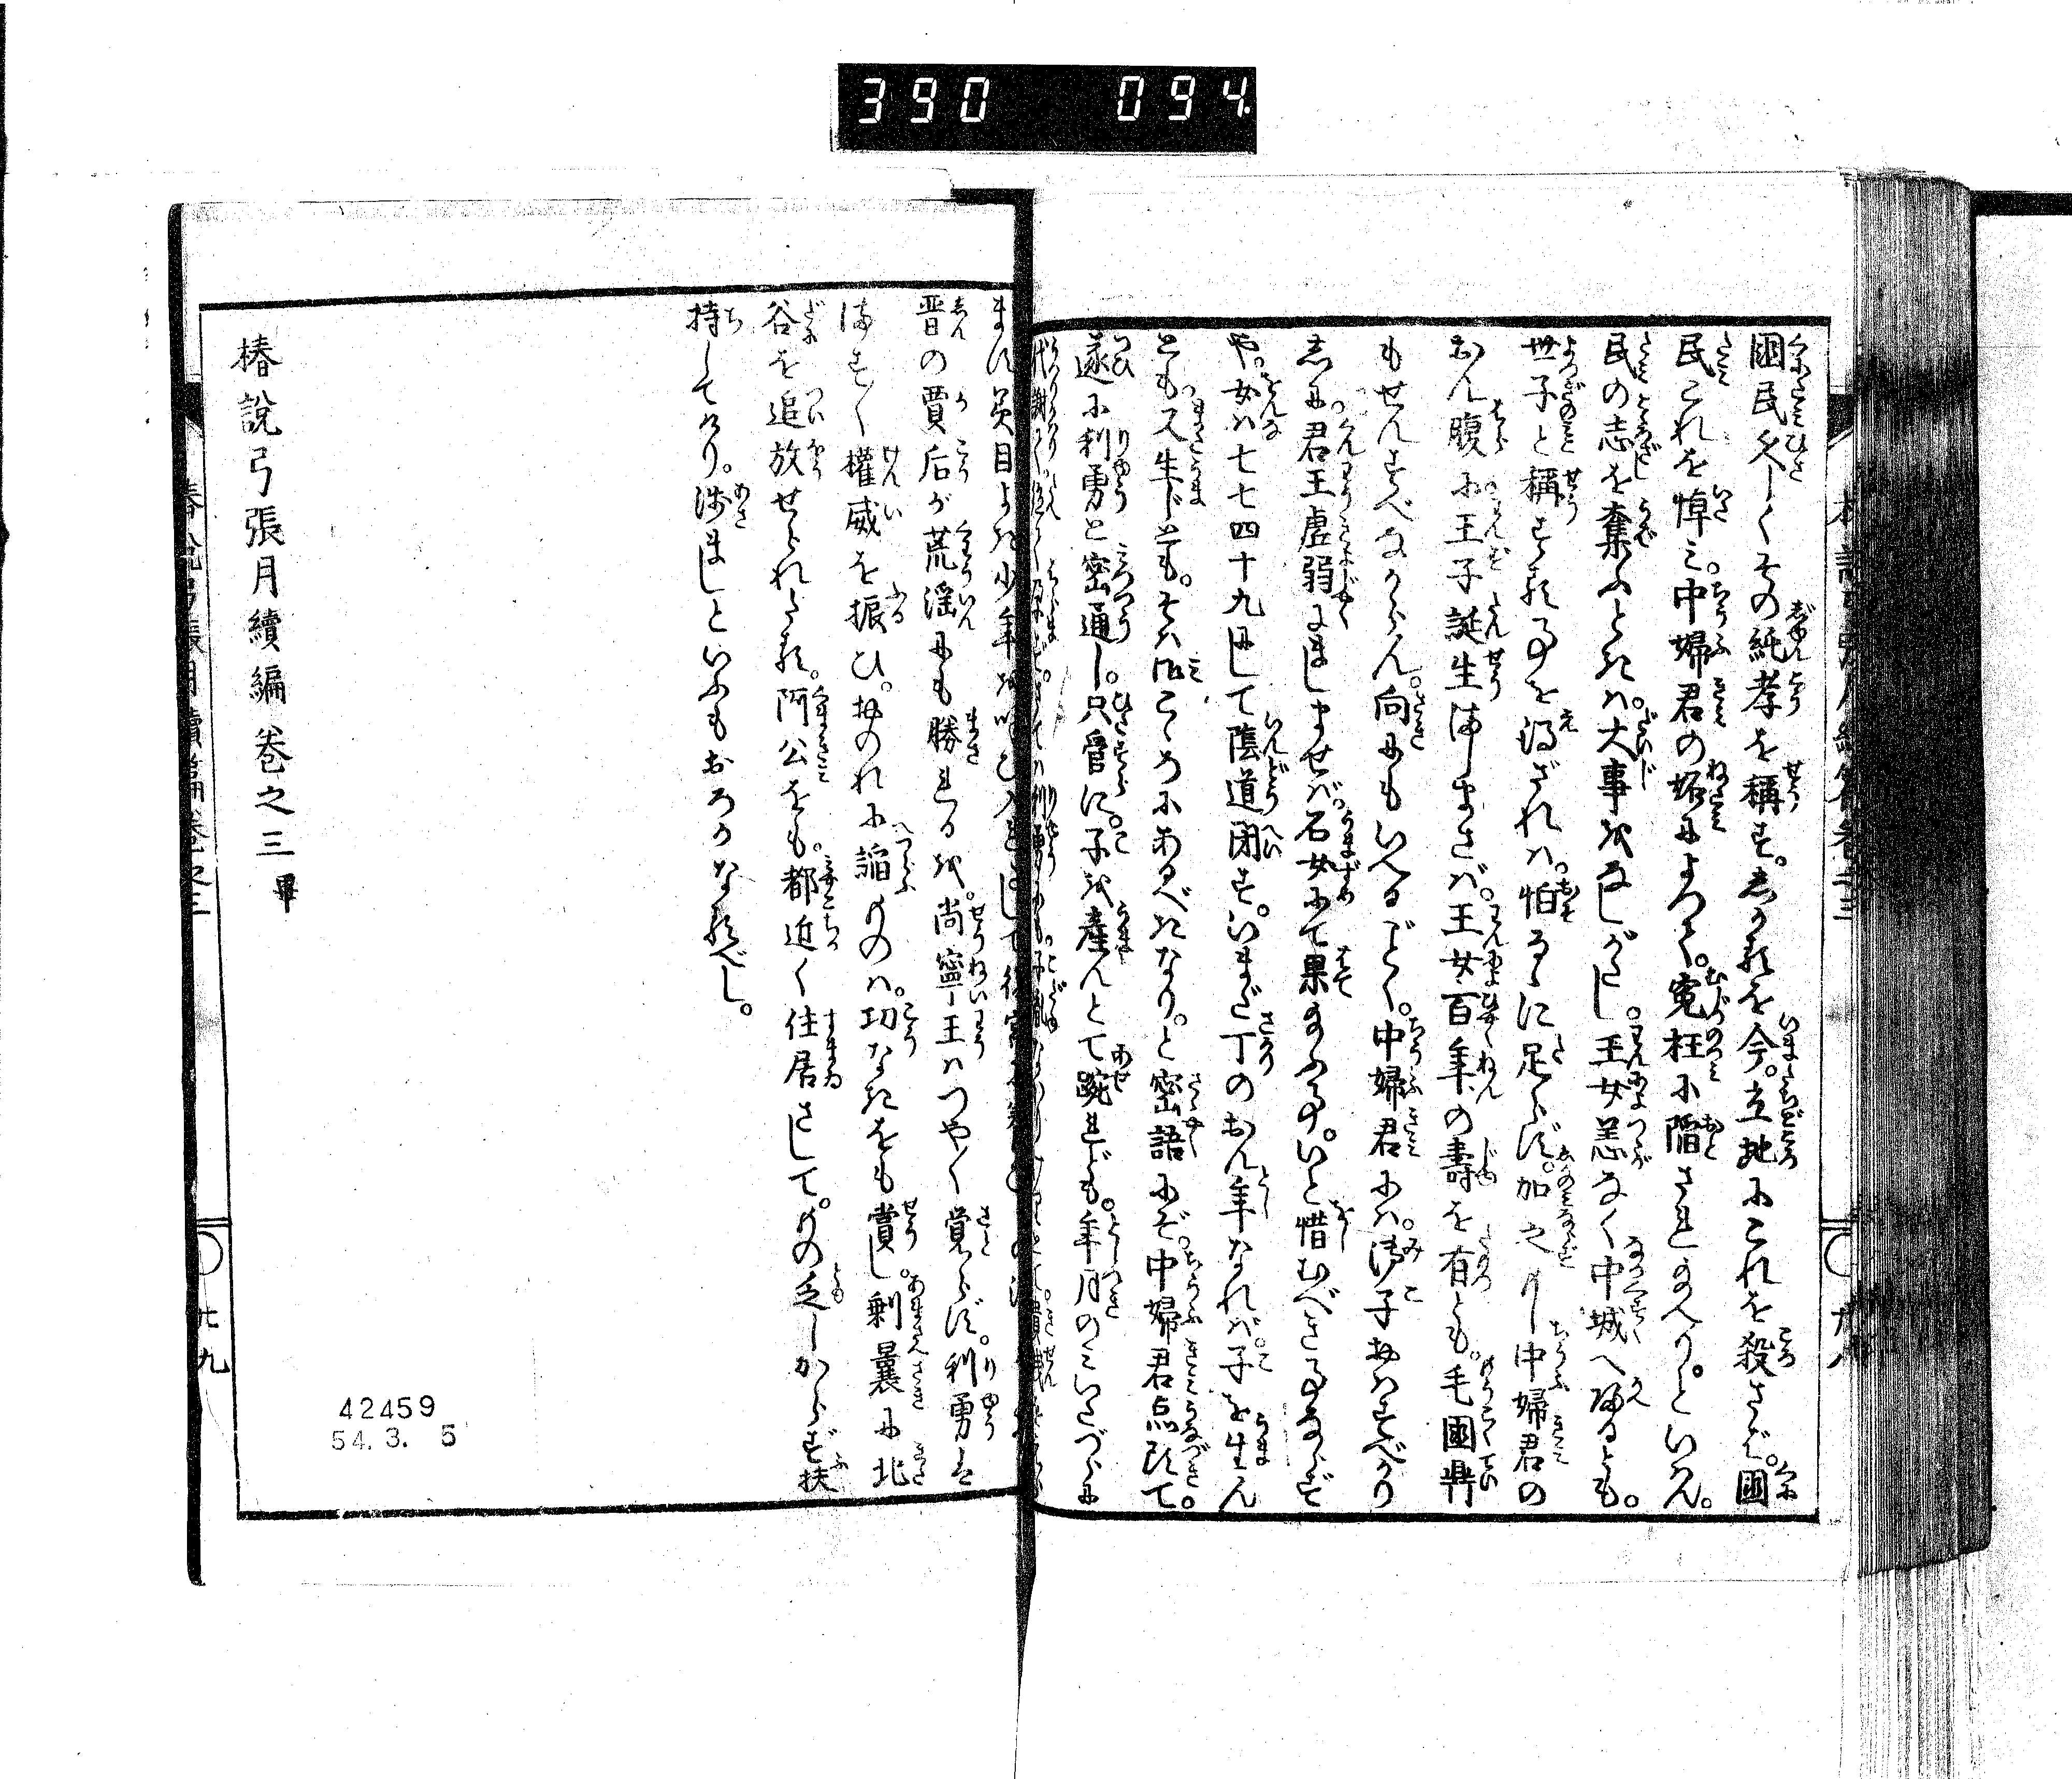 390 094
國民久しくその純孝を稱す。しかるを今。立地にこれを殺さば。國
民これを悼み。中婦君の妬によつて。寃枉に陥されまへり。といはん。
民の志を奪ふときは。大事なしがたし。王女恙なく中城へ歸るとも。
世子と稱する事を得ざれば。怕るゝに足らず。加之もし中婦君の
おん腹に王子誕生ましまさば。王女百年の壽を有とも。毛國鼎
もせんすべなからん。向にもいへるごとく。中婦君には。御子おはすべかり
しに君王虚弱にましませば。石女にて果給ふ事。いと惜むべき事ならずや
や。女は七七四十九にして陰道閉す。いまだ丁のおん年なれば。子を生ん
とも又生じとも。そは御こゝろにあるべきなり。と密語にぞ。中婦君点頭て。
遂に利勇と密通し。只管に。子を産んとて踠れども。年月のみいたづらに
ます。眉目よき少年を
晋の賈后が荒淫にも勝れるを。尚寧王はつや〳〵覚らず。利勇は
ます〳〵權威を振ひ。おのれに謟ものは。功なきをも賞し。剰曩に北
谷を追放せられたる。阿公をも。都近く住居さして。もの乏しからず扶
持してけり。浅ましといふもおろかなるべし。
椿說弓張月續編卷之三畢
椿說弓張月續編卷之三
廿九
42459
54. 3. 5